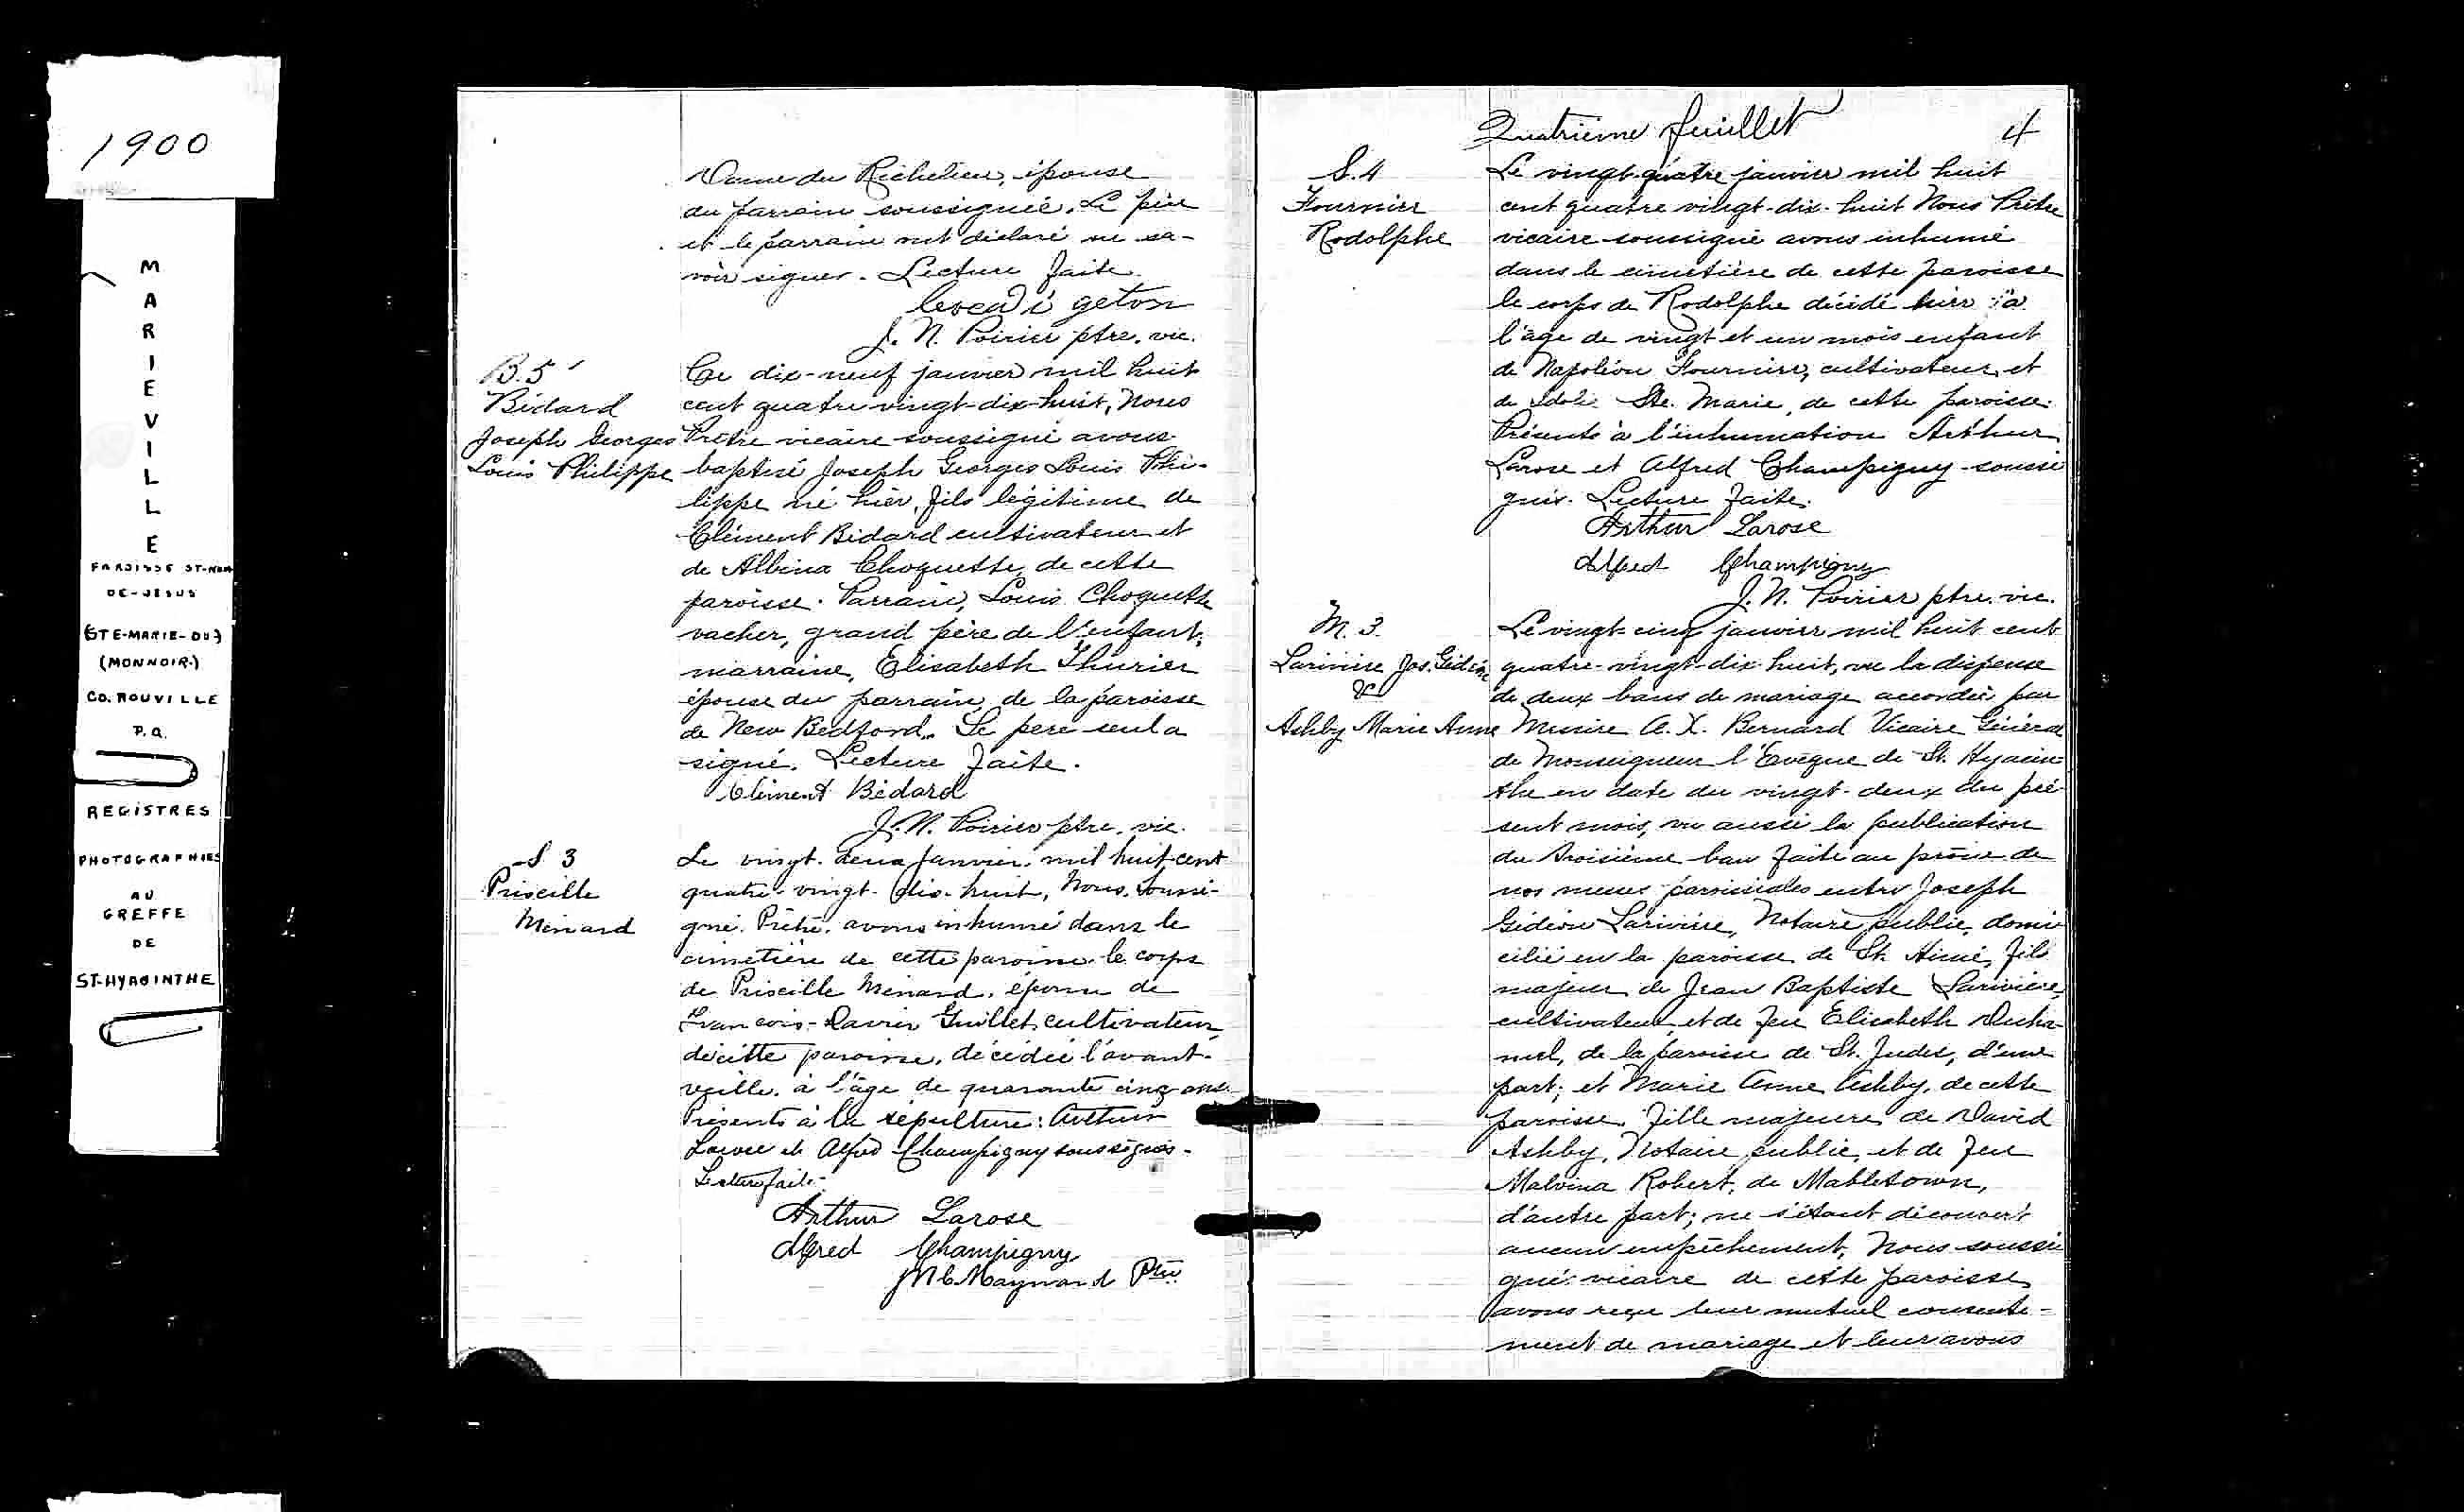 1900
MARIEVILLE
PAROISSE ST-NOM
DE-JESUS
(STE-MARIE-DU)
(MONNOIR)
CO. ROUVILLE
P.Q.
REGISTRES
PHOTOGRAPHIES
AU
GREFFE
DE
ST-HYACINTHE
Dame du Richelieu, épouse
du parrain soussignée. Le père
et le parrain ont déclaré ne sa-
voir signer. Lecture faite.
J. N. Poirier ptre. vic.
B. 5
Bédard
Joseph Georges
Louis Philippe
Ce dix-neuf janvier mil huit
cent quatre vingt-dix-huit, Nous
Prêtre vicaire soussigné avons
baptisé Joseph Georges Louis Phi-
lippe né hier, fils légitime de
Clément Bédard cultivateur et
de Albina Choquette, de cette
paroisse. Parrain, Louis Choquette
vacher, grand père de l'enfant;
marraine, Elisabeth Thurier
épouse du parrain, de la paroisse
de New Bedford. Le père seul a
signé. Lecture faite.
Clément Bédard
J. N. Poirier ptre. vic.
S 3
Priscille
Ménard
Le vingt-deux Janvier, mil huit-cent
quatre-vingt-dix-huit, Nous, Soussi-
gné, Prêtre, avons inhumé dans le
cimetière de cette paroisse le corps
de Priscille Ménard, épouse de
François-Xavier Guillet, cultivateur,
de cette paroisse, décédée l'avant-
veille, à l'âge de quarante cinq ans.
Présents à la sépulture: Arthur
Larose et Alfred Champigny soussignés.
Lecture faite.
Arthur Larose
Alfred Champigny
J M C Maynard Ptre
Quatrième feuillet 4
S. 4
Fournier
Rodolphe
Le vingt-quatre janvier mil huit
cent quatre vingt-dix-huit Nous Prêtre
vicaire soussigné avons inhumé
dans le cimetière de cette paroisse
le corps de Rodolphe décédé hier à
l'âge de vingt et un mois enfant
de Napoléon Fournier, cultivateur, et
de Ste. Marie, de cette paroisse.
Présents à l'inhumation Arthur
Larose et Alfred Champigny soussi
gnés. Lecture faite.
Arthur Larose
Alfred Champigny
J. N. Poirier ptre. vic.
M. 3.
Larivière Jos. Gédéon
&
Ashby Marie Anne
Le vingt-cinq janvier mil huit cent
quatre-vingt-dix-huit, vu la dispense
de deux bans de mariage accordée par
Messire A. X. Bernard Vicaire Général
de Monseigneur l'Evêque de St. Hyacin-
the en date du vingt-deux du pré-
sent mois, vu aussi la publication
du troisième ban faite au prône de
nos messes paroissiales entre Joseph
Gédéon Larivière, Notaire public, domi
cilié en la paroisse de St. Aimé, fils
majeur de Jean Baptiste Larivière,
cultivateur, et de feu Elisabeth Ducha-
mel, de la paroisse de St. Judes, d'une
part; et Marie Anne Ashby, de cette
paroisse, fille majeure de David
Ashby, Notaire public, et de feu
Malvina Robert, de Mabletown,
d'autre part; ne s'étant découvert
aucun empêchement, Nous soussi
gné vicaire de cette paroisse,
avons reçu leur mutuel consente-
ment de mariage et leur avons